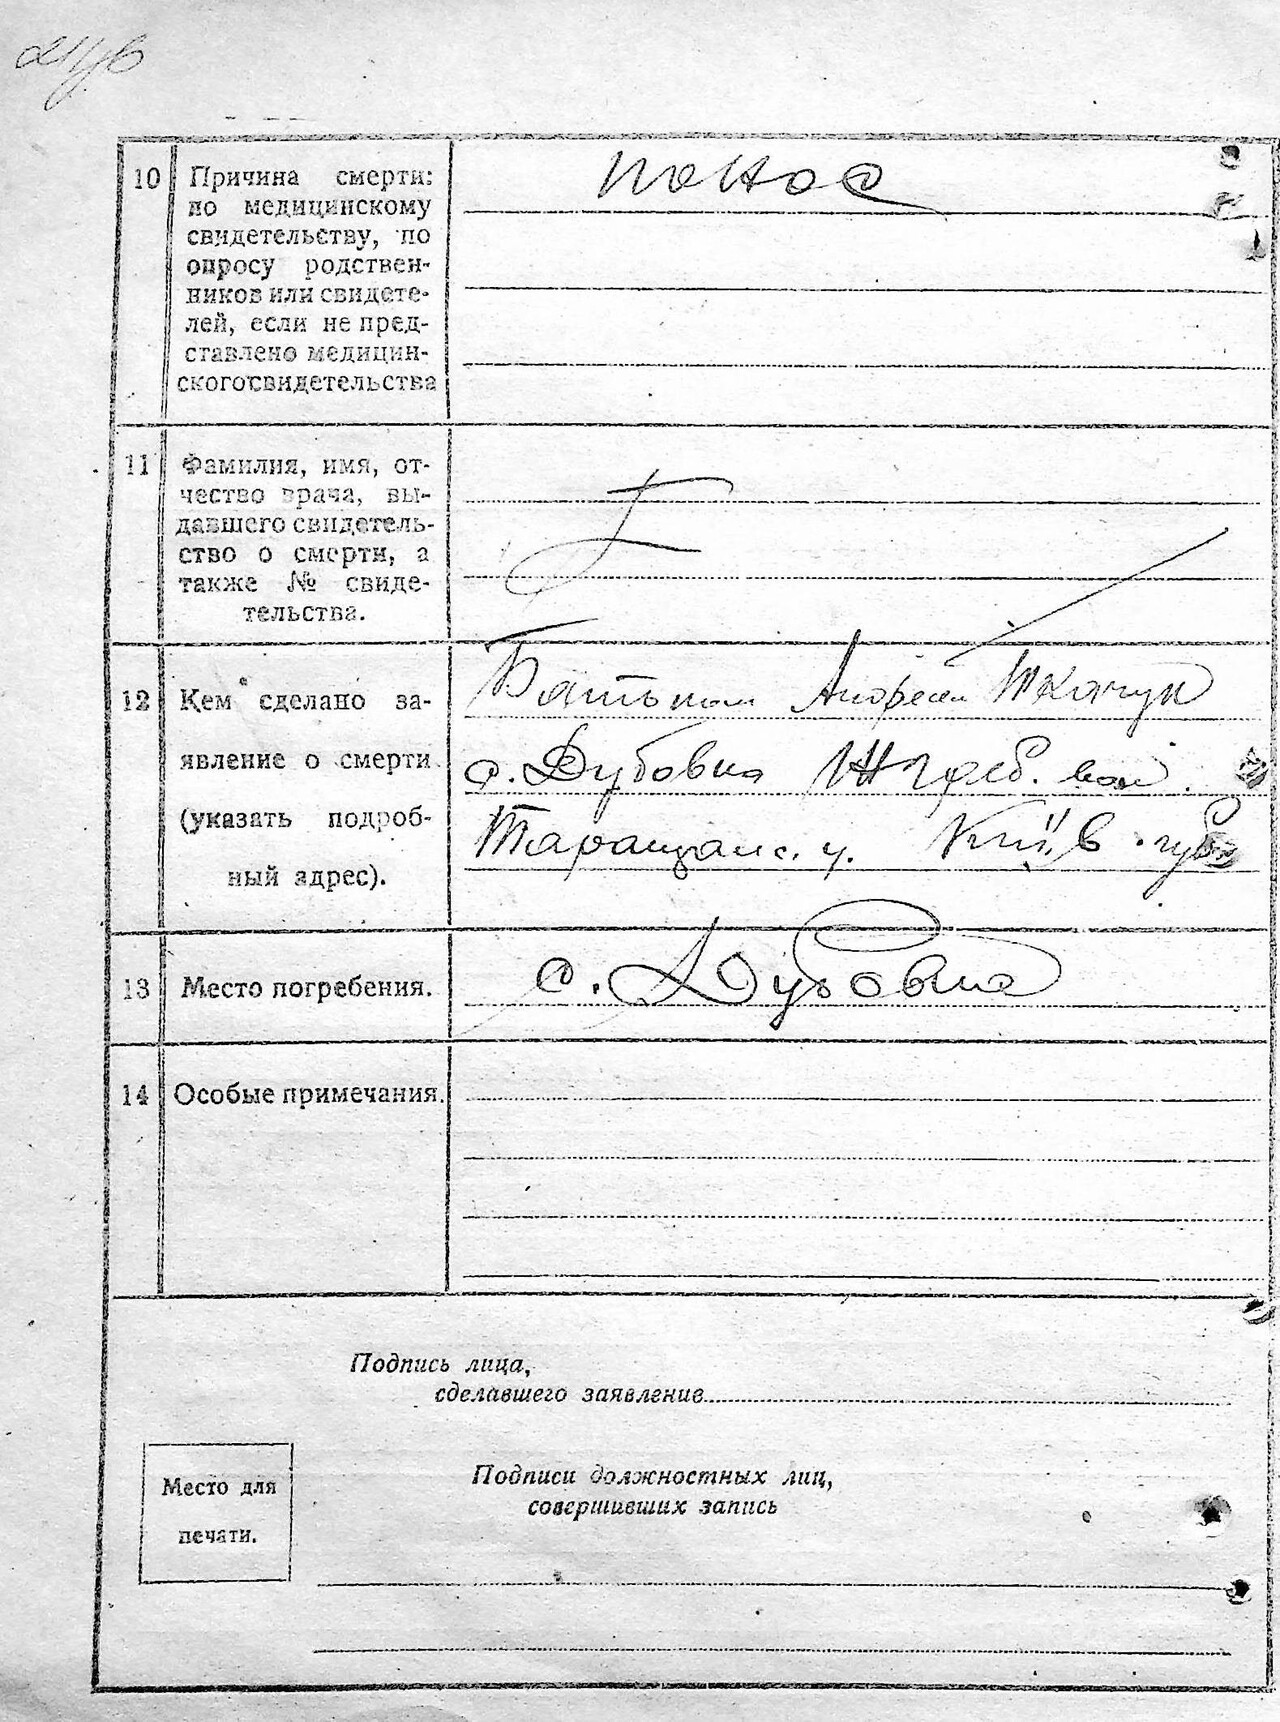 10 Причина смерти: понос
по медицинскому
свидетельству, по
опросу родствен-
ников или свидете-
лей, если не пред-
ставлено медицин-
ского свидетельства
11 Фамилия, имя, от-
чество врача, вы-
давшего свидетель-
ство о смерти, а
также № свиде-
тельства.
12 Кем сделано за- Батьком Андреем Ткачук
явление о смерти с. Дубовка вол.
(указать подроб- Таращанс. у. Київ. губ
ный адрес).
13 Место погребения. с. Дубовка
14 Особые примечания.
Подпись лица,
сделавшего заявление
Место для
печати.
Подписи должностных лиц,
совершивших запись